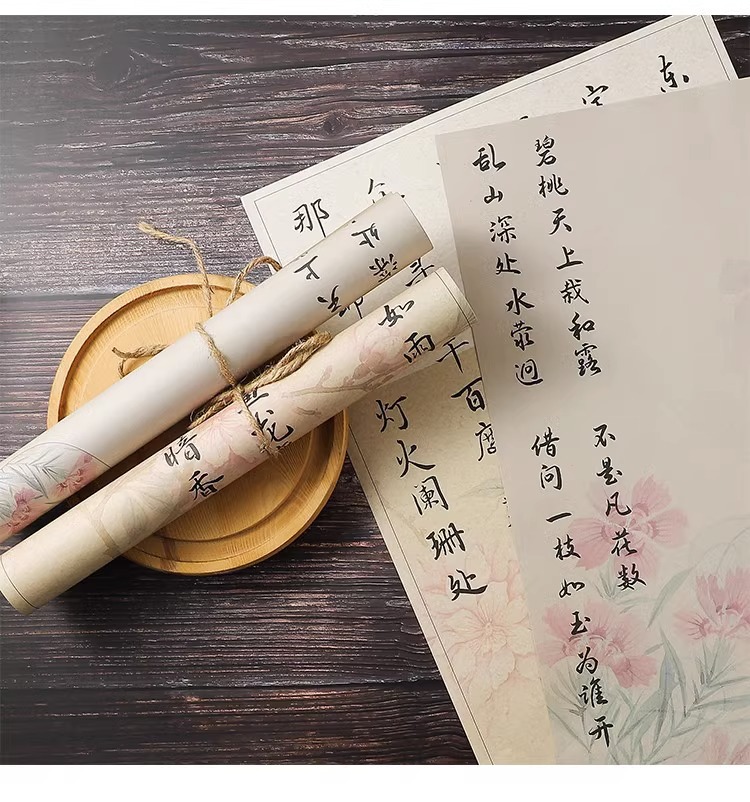 碧桃天上栽和露
不是凡花数
乱山深处水萦迴
借问一枝如玉为谁开
东
千百度
那
灯火阑珊处
如雨
暗香